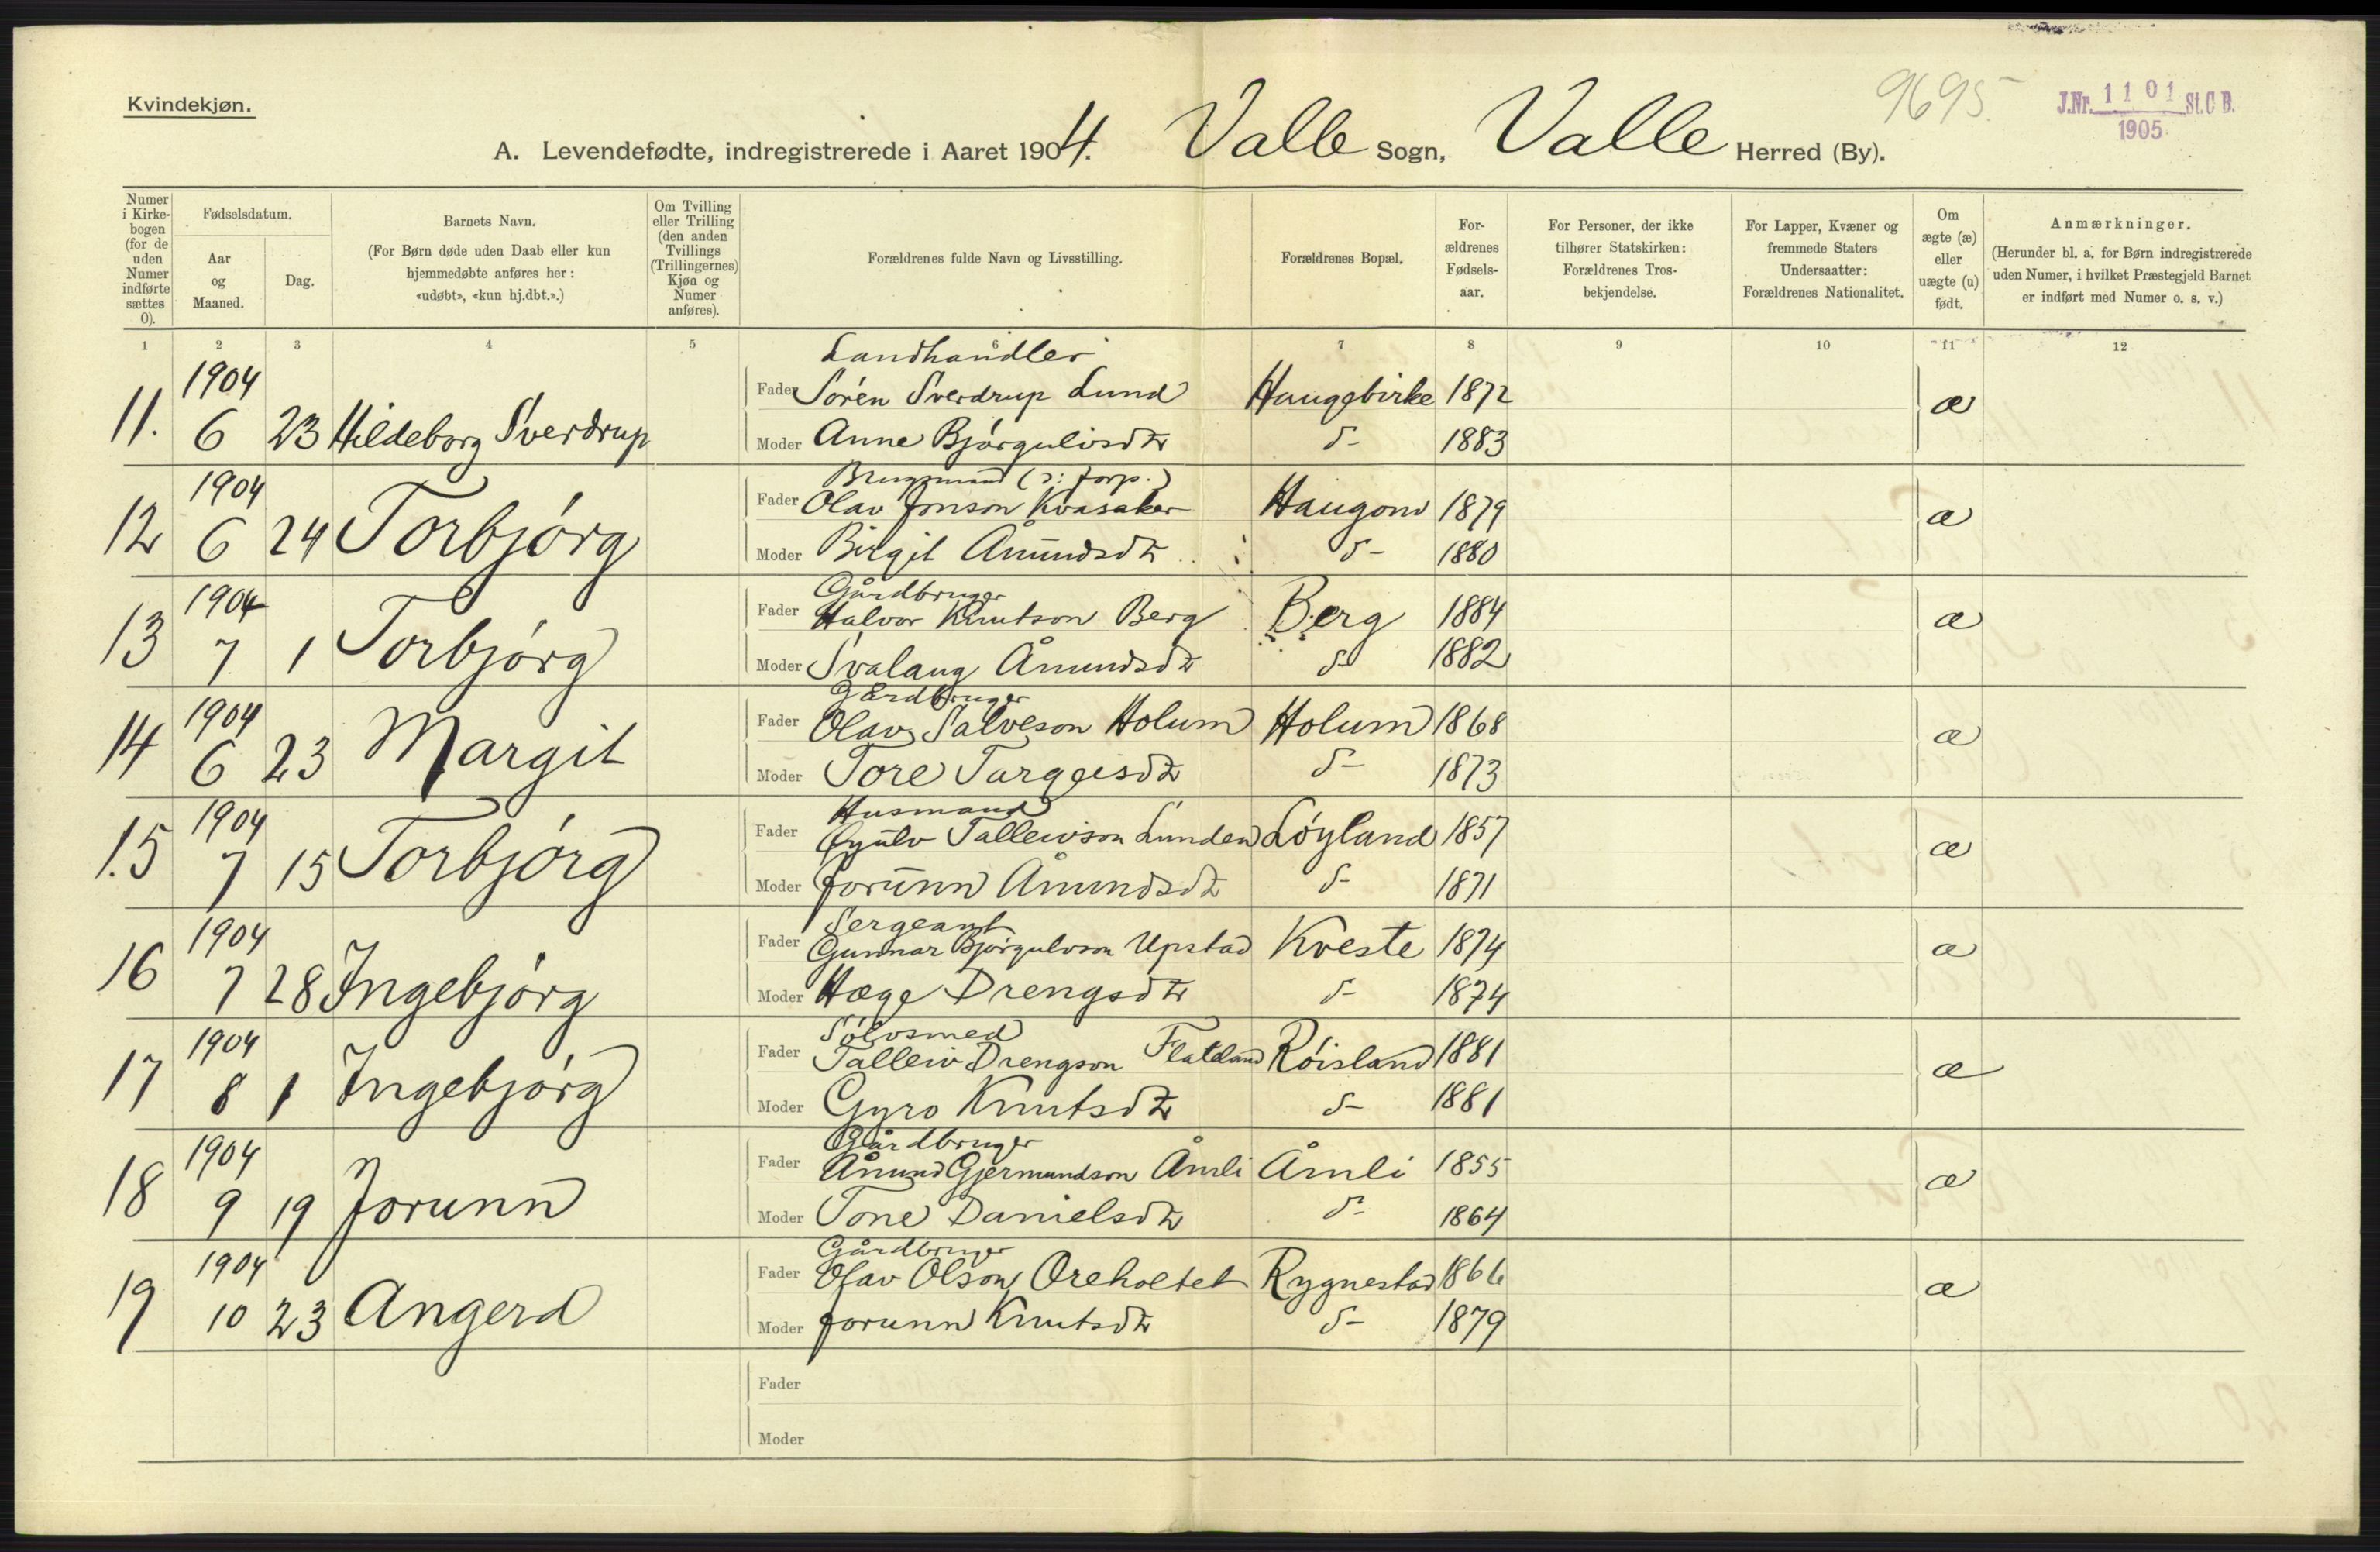 Kvindekjøn.
9695
J.Nr. 1101 St. C. B.
1905
A. Levendefødte, indregistrerede i Aaret 1904. Valle Sogn, Valle Herred (By).
Numer i Kirkebogen (for de uden Numer indførte sættes 0).
Fødselsdatum.
Aar og Maaned.
Dag.
Barnets Navn.
(For Børn døde uden Daab eller kun hjemmedøbte anføres her: «udøbt», «kun hj.dbt.».)
Om Tvilling eller Trilling (den anden Tvillings (Trillingernes) Kjøn og Numer anføres).
Forældrenes fulde Navn og Livsstilling.
Forældrenes Bopæl.
Forældrenes Fødselsaar.
For Personer, der ikke tilhører Statskirken: Forældrenes Trosbekjendelse.
For Lapper, Kvæner og fremmede Staters Undersaatter: Forældrenes Nationalitet.
Om ægte (æ) eller uægte (u) født.
Anmærkninger.
(Herunder bl. a. for Børn indregistrerede uden Numer, i hvilket Præstegjeld Barnet er indført med Numer o. s. v.)
1 2 3 4 5 6 7 8 9 10 11 12
1904 Landhandler
Fader Sören Sverdrup Lund Haugebirke 1872 æ
11. 6 23 Hildeborg Sverdrup Moder Anne Bjórgulvsdtr d- 1883
1904 Brugsmand (ɔ: forp.)
Fader Olav Jonson Kvasaker Haugom 1879 æ
12 6 24 Torbjórg Moder Birgit Åmundsdtr d- 1880
1904 Gårdbruger
Fader Halvor Knutson Berg Berg 1884 æ
13 7 1 Torbjórg Moder Svalaug Åmundsdtr d- 1882
1904 Gårdbruger
Fader Olav Salveson Holum Holum 1868 æ
14 6 23 Margit Moder Tore Targeisdtr d- 1873
1904 Husmand
Fader Eyulv Talleivson Lunden Lóyland 1857 æ
15 7 15 Torbjórg Moder Jorunn Åmundsdtr d- 1871
1904 Sergeant
Fader Gunnar Bjórgulvson Upstad Kveste 1874 æ
16 7 28 Ingebjórg Moder Hæge Drengsdtr d- 1874
1904 Sólvsmed
Fader Talleiv Drengson Flateland Róisland 1881 æ
17 8 1 Ingebjórg Moder Gyro Knutsdtr d- 1881
1904 Gårdbruger
Fader Ånund Gjermundson Åmli Åmli 1855 æ
18 9 19 Jorunn Moder Tone Danielsdtr d- 1864
1904 Gårdbruger
Fader Olav Olson Oreholtet Rygnestad 1866 æ
19 10 23 Angerd Moder Jorunn Knutsdtr d- 1879
Fader
Moder